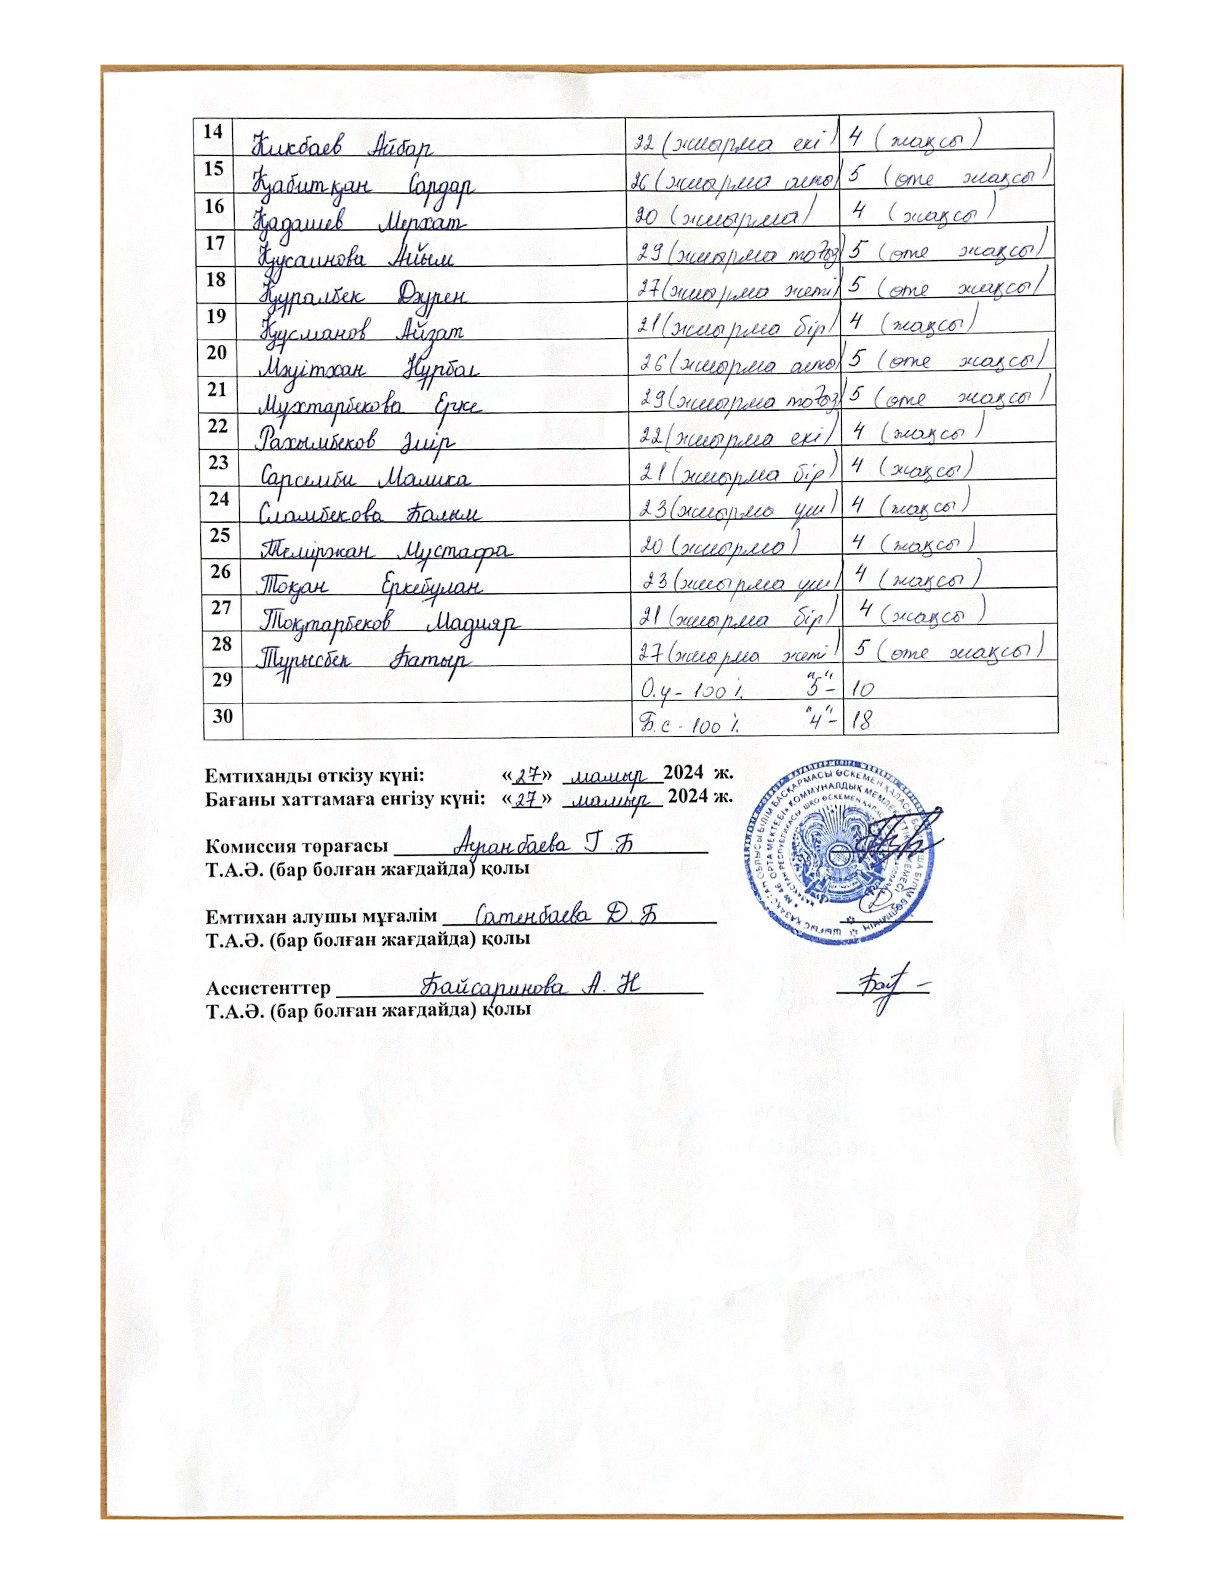 14 Кикбаев Айбар 22 (жиырма екі) 4 (жақсы)
15 Қабитқан Сардар 26 (жиырма алты) 5 (өте жақсы)
16 Қадашев Мерхат 20 (жиырма) 4 (жақсы)
17 Құсаинова Айым 29 (жиырма тоғыз) 5 (өте жақсы)
18 Құралбек Дәурен 27 (жиырма жеті) 5 (өте жақсы)
19 Құсманов Айзат 21 (жиырма бір) 4 (жақсы)
20 Мәуітхан Нұрбол 26 (жиырма алты) 5 (өте жақсы)
21 Мұхтарбекова Ерке 29 (жиырма тоғыз) 5 (өте жақсы)
22 Рахымбеков Әмір 22 (жиырма екі) 4 (жақсы)
23 Сарсемби Малика 21 (жиырма бір) 4 (жақсы)
24 Сламбекова Балым 23 (жиырма үш) 4 (жақсы)
25 Теміржан Мұстафа 20 (жиырма) 4 (жақсы)
26 Тоқан Еркебұлан 23 (жиырма үш) 4 (жақсы)
27 Тоқтарбеков Мадияр 21 (жиырма бір) 4 (жақсы)
28 Тұрысбек Батыр 27 (жиырма жеті) 5 (өте жақсы)
29 О.ү - 100 % "5" - 10
30 Б.с - 100 % "4" - 18
Емтиханды өткізу күні: «27» мамыр 2024 ж.
Бағаны хаттамаға енгізу күні: «27» мамыр 2024 ж.
Комиссия төрағасы Ауганбаева Г. Б
Т.А.Ә. (бар болған жағдайда) қолы
Емтихан алушы мұғалім Сатенбаева Д. Б
Т.А.Ә. (бар болған жағдайда) қолы
Ассистенттер Байсаринова А. Н
Т.А.Ә. (бар болған жағдайда) қолы